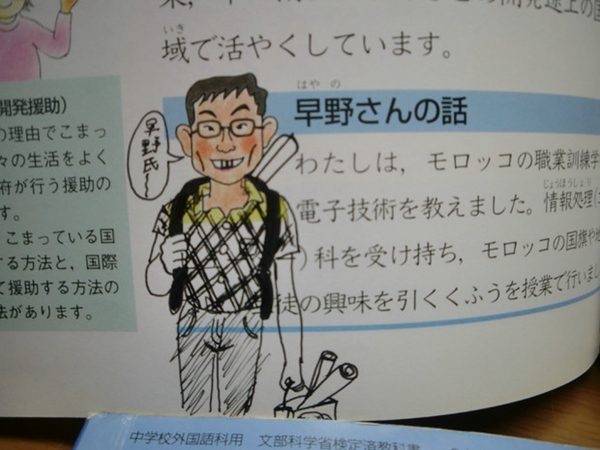 の開発途上の国
いき
域で活やくしています。
開発援助)
の理由でこまっ
々の生活をよく
府が行う援助の
す。
こまっている国
する方法と，国際
て援助する方法の
法があります。
早野氏〜
はやの
早野さんの話
わたしは，モロッコの職業訓練学
電子技術を教えました。情報処理(
じょうほうしょり
)科を受け持ち，モロッコの国旗や
徒の興味を引くくふうを授業で行いまし
中学校外国語科用 文部科学省検定済教科書